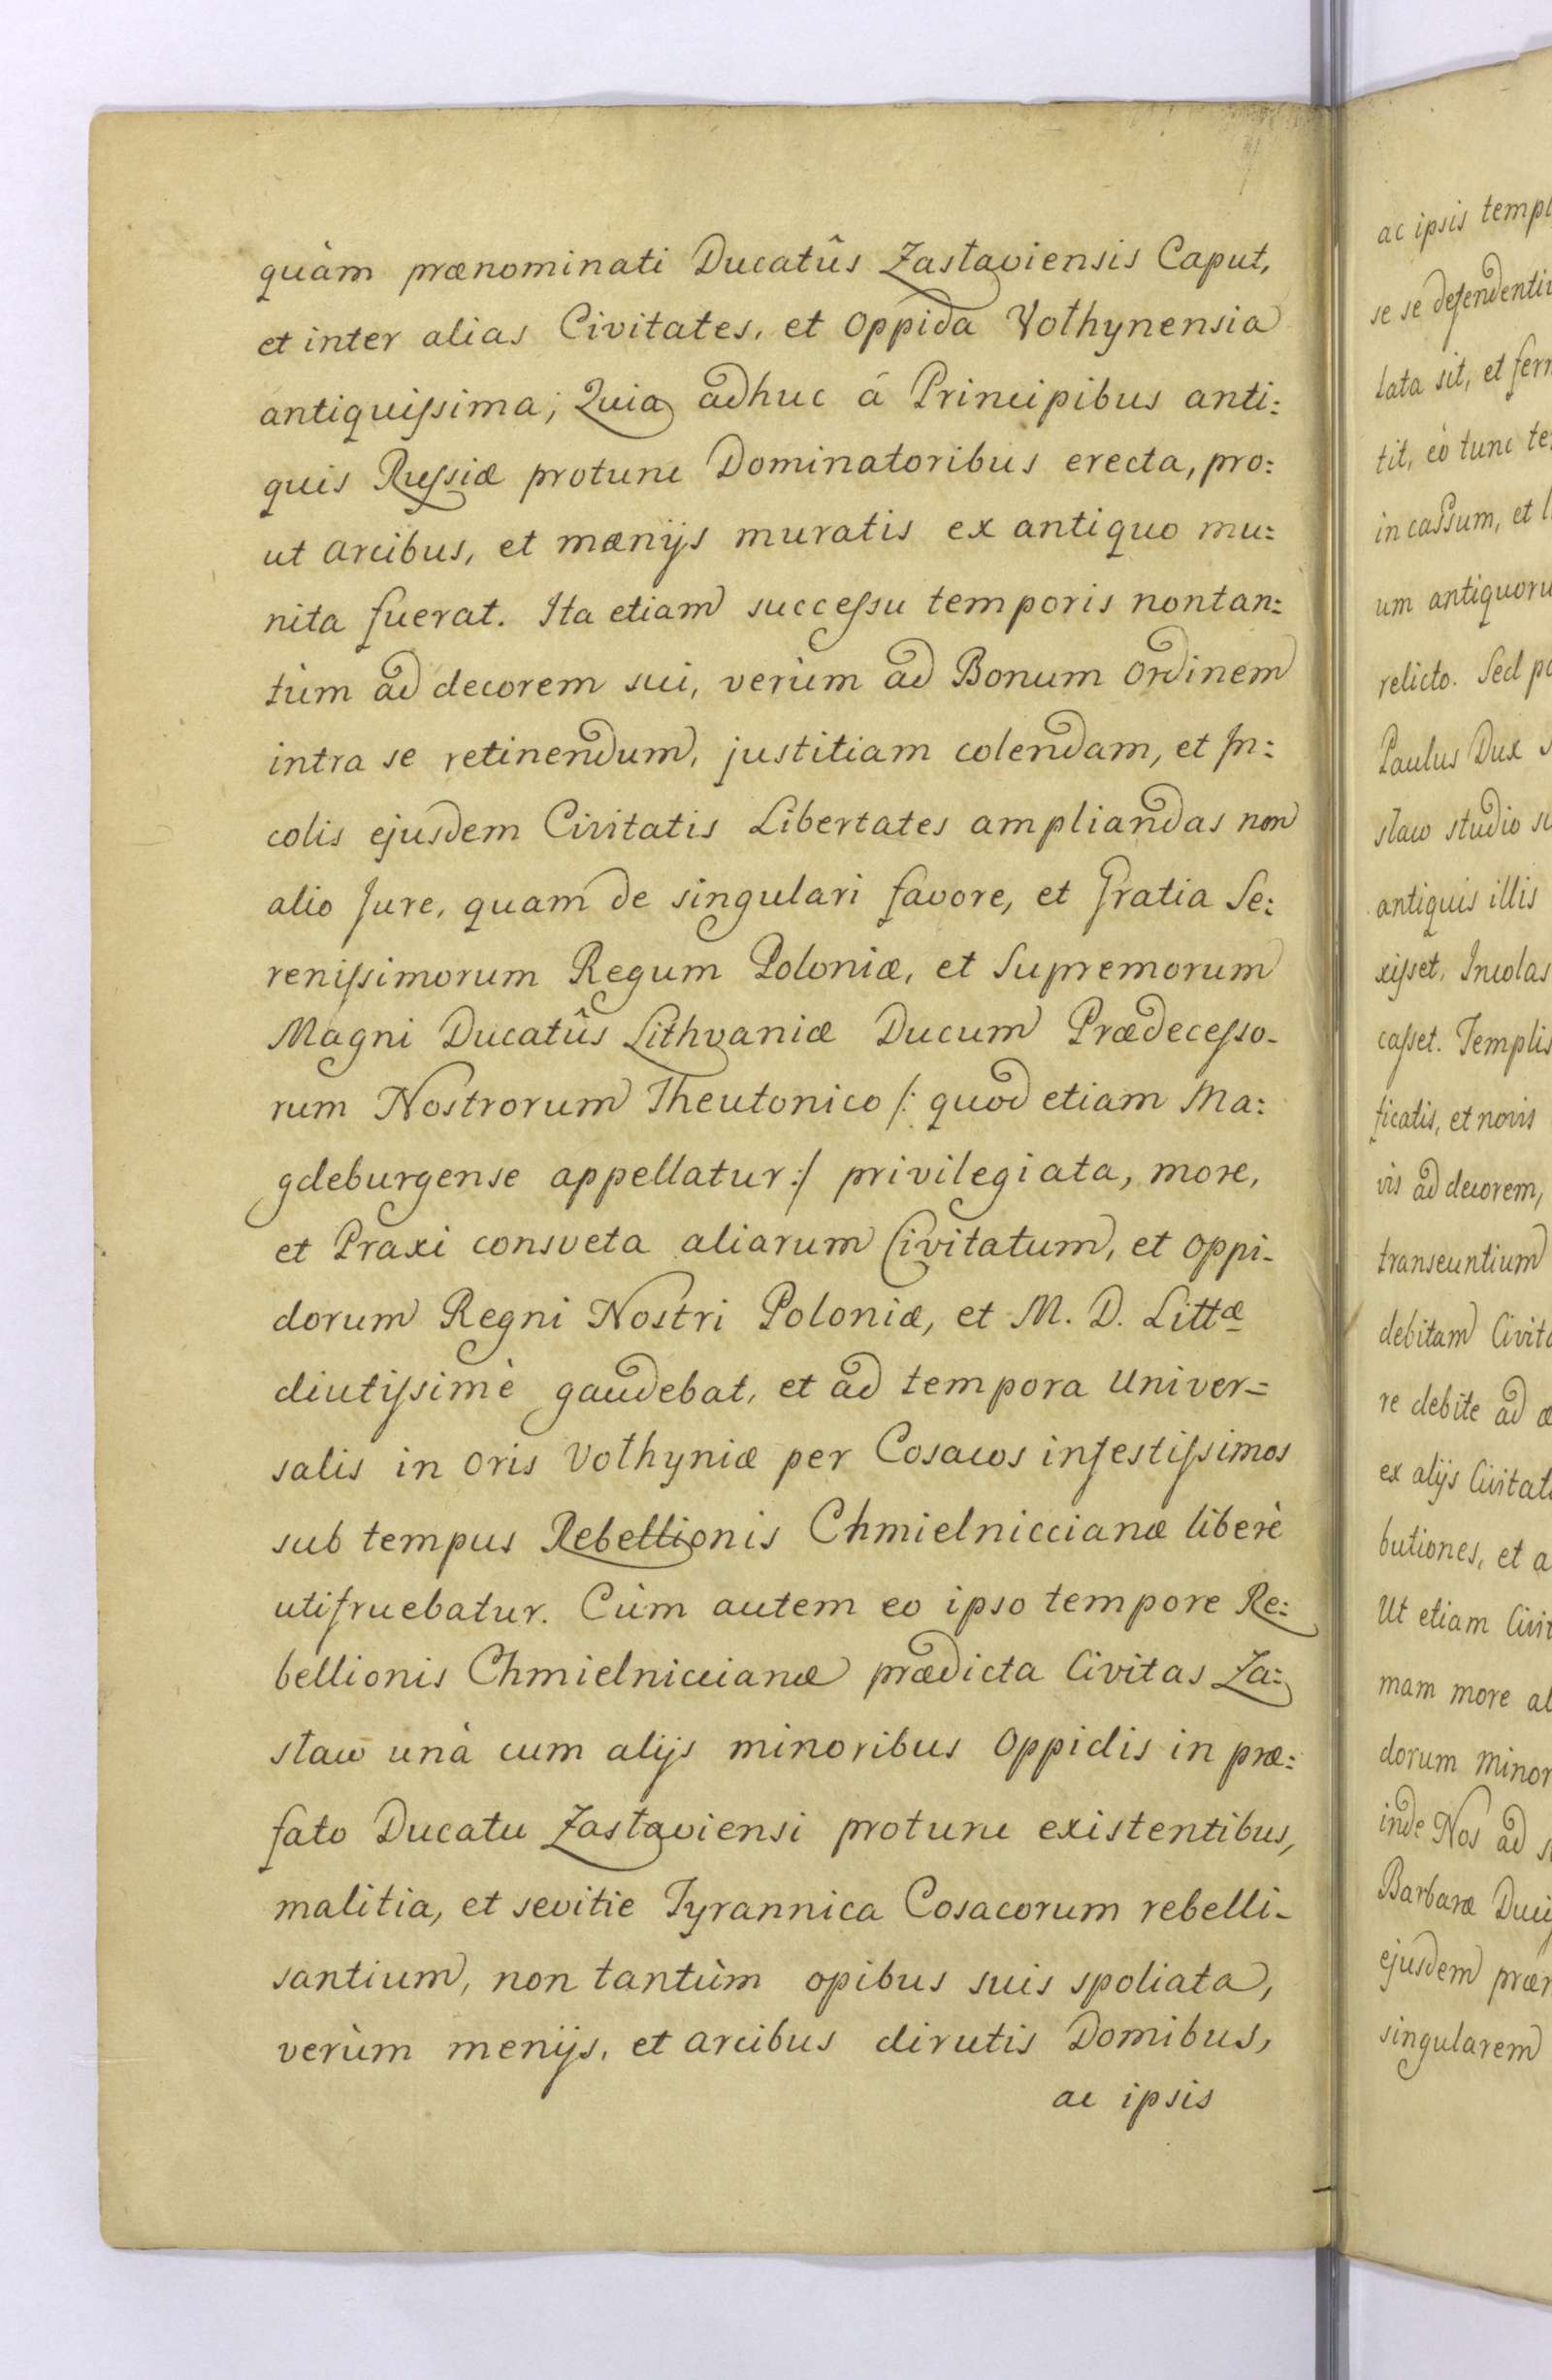 quàm prænominati Ducatûs Zasłaviensis Caput,
et inter alias Civitates, et oppida Vołhynensia
antiquissima; Quia adhuc á Principibus anti:
quis Russiæ protunc Dominatoribus erecta, pro:
ut arcibus, et mænijs muratis ex antiquo mu:
nita fuerat. Ita etiam successu temporis nontan:
tùm ad decorem sui, verùm ad Bonum ordinem
intra se retinendum, justitiam colendam, et In:
colis ejusdem Civitatis Libertates ampliandas non
alio Jure, quam de singulari favore, et Gratia Se:
renissimorum Regum Poloniæ, et Supremorum
Magni Ducatûs Lithvaniæ Ducum Prædecesso-
rum Nostrorum Theutonico /: quod etiam Ma:
gdeburgense appellatur :/ privilegiata, more,
et Praxi consveta aliarum Civitatum, et oppi-
dorum Regni Nostri Poloniæ, et M. D. Littæ
diutissimè gaudebat, et ad tempora Univer=
salis in oris Vołhyniæ per Cosacos infestissimos
sub tempus Rebellionis Chmielniccianæ liberè
utifruebatur. Cùm autem eo ipso tempore Re:
bellionis Chmielniccianæ prædicta Civitas Za:
sław unà cum alijs minoribus oppidis in præ:
fato Ducatu Zasłaviensi protunc existentibus,
malitia, et sevitie Tyrannica Cosacorum rebelli-
santium, non tantùm opibus suis spoliata,
verùm menijs, et arcibus dirutis Domibus,
ac ipsis
ac ipsis templ
se se defendenti
lata sit, et ferr
tit, eò tunc te
in cassum, et
um antiquoru
relicto. Sed po
Paulus Dux
sław studio su
antiquis illis
xisset, Incolas
casset. Templis
ficatis, et novis
vis ad decorem,
transeuntium
debitam Civita
re debite ad
ex alijs Civitat
butiones, et a
Ut etiam Civit
mam more al
dorum minor
inde Nos ad
Barbaræ Duci
ejusdem præ
singularem